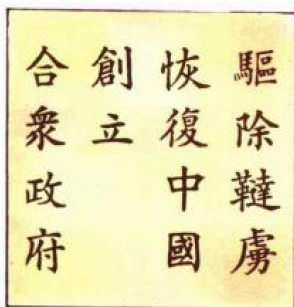 驅除韃虜
恢復中國
創立
合衆政府